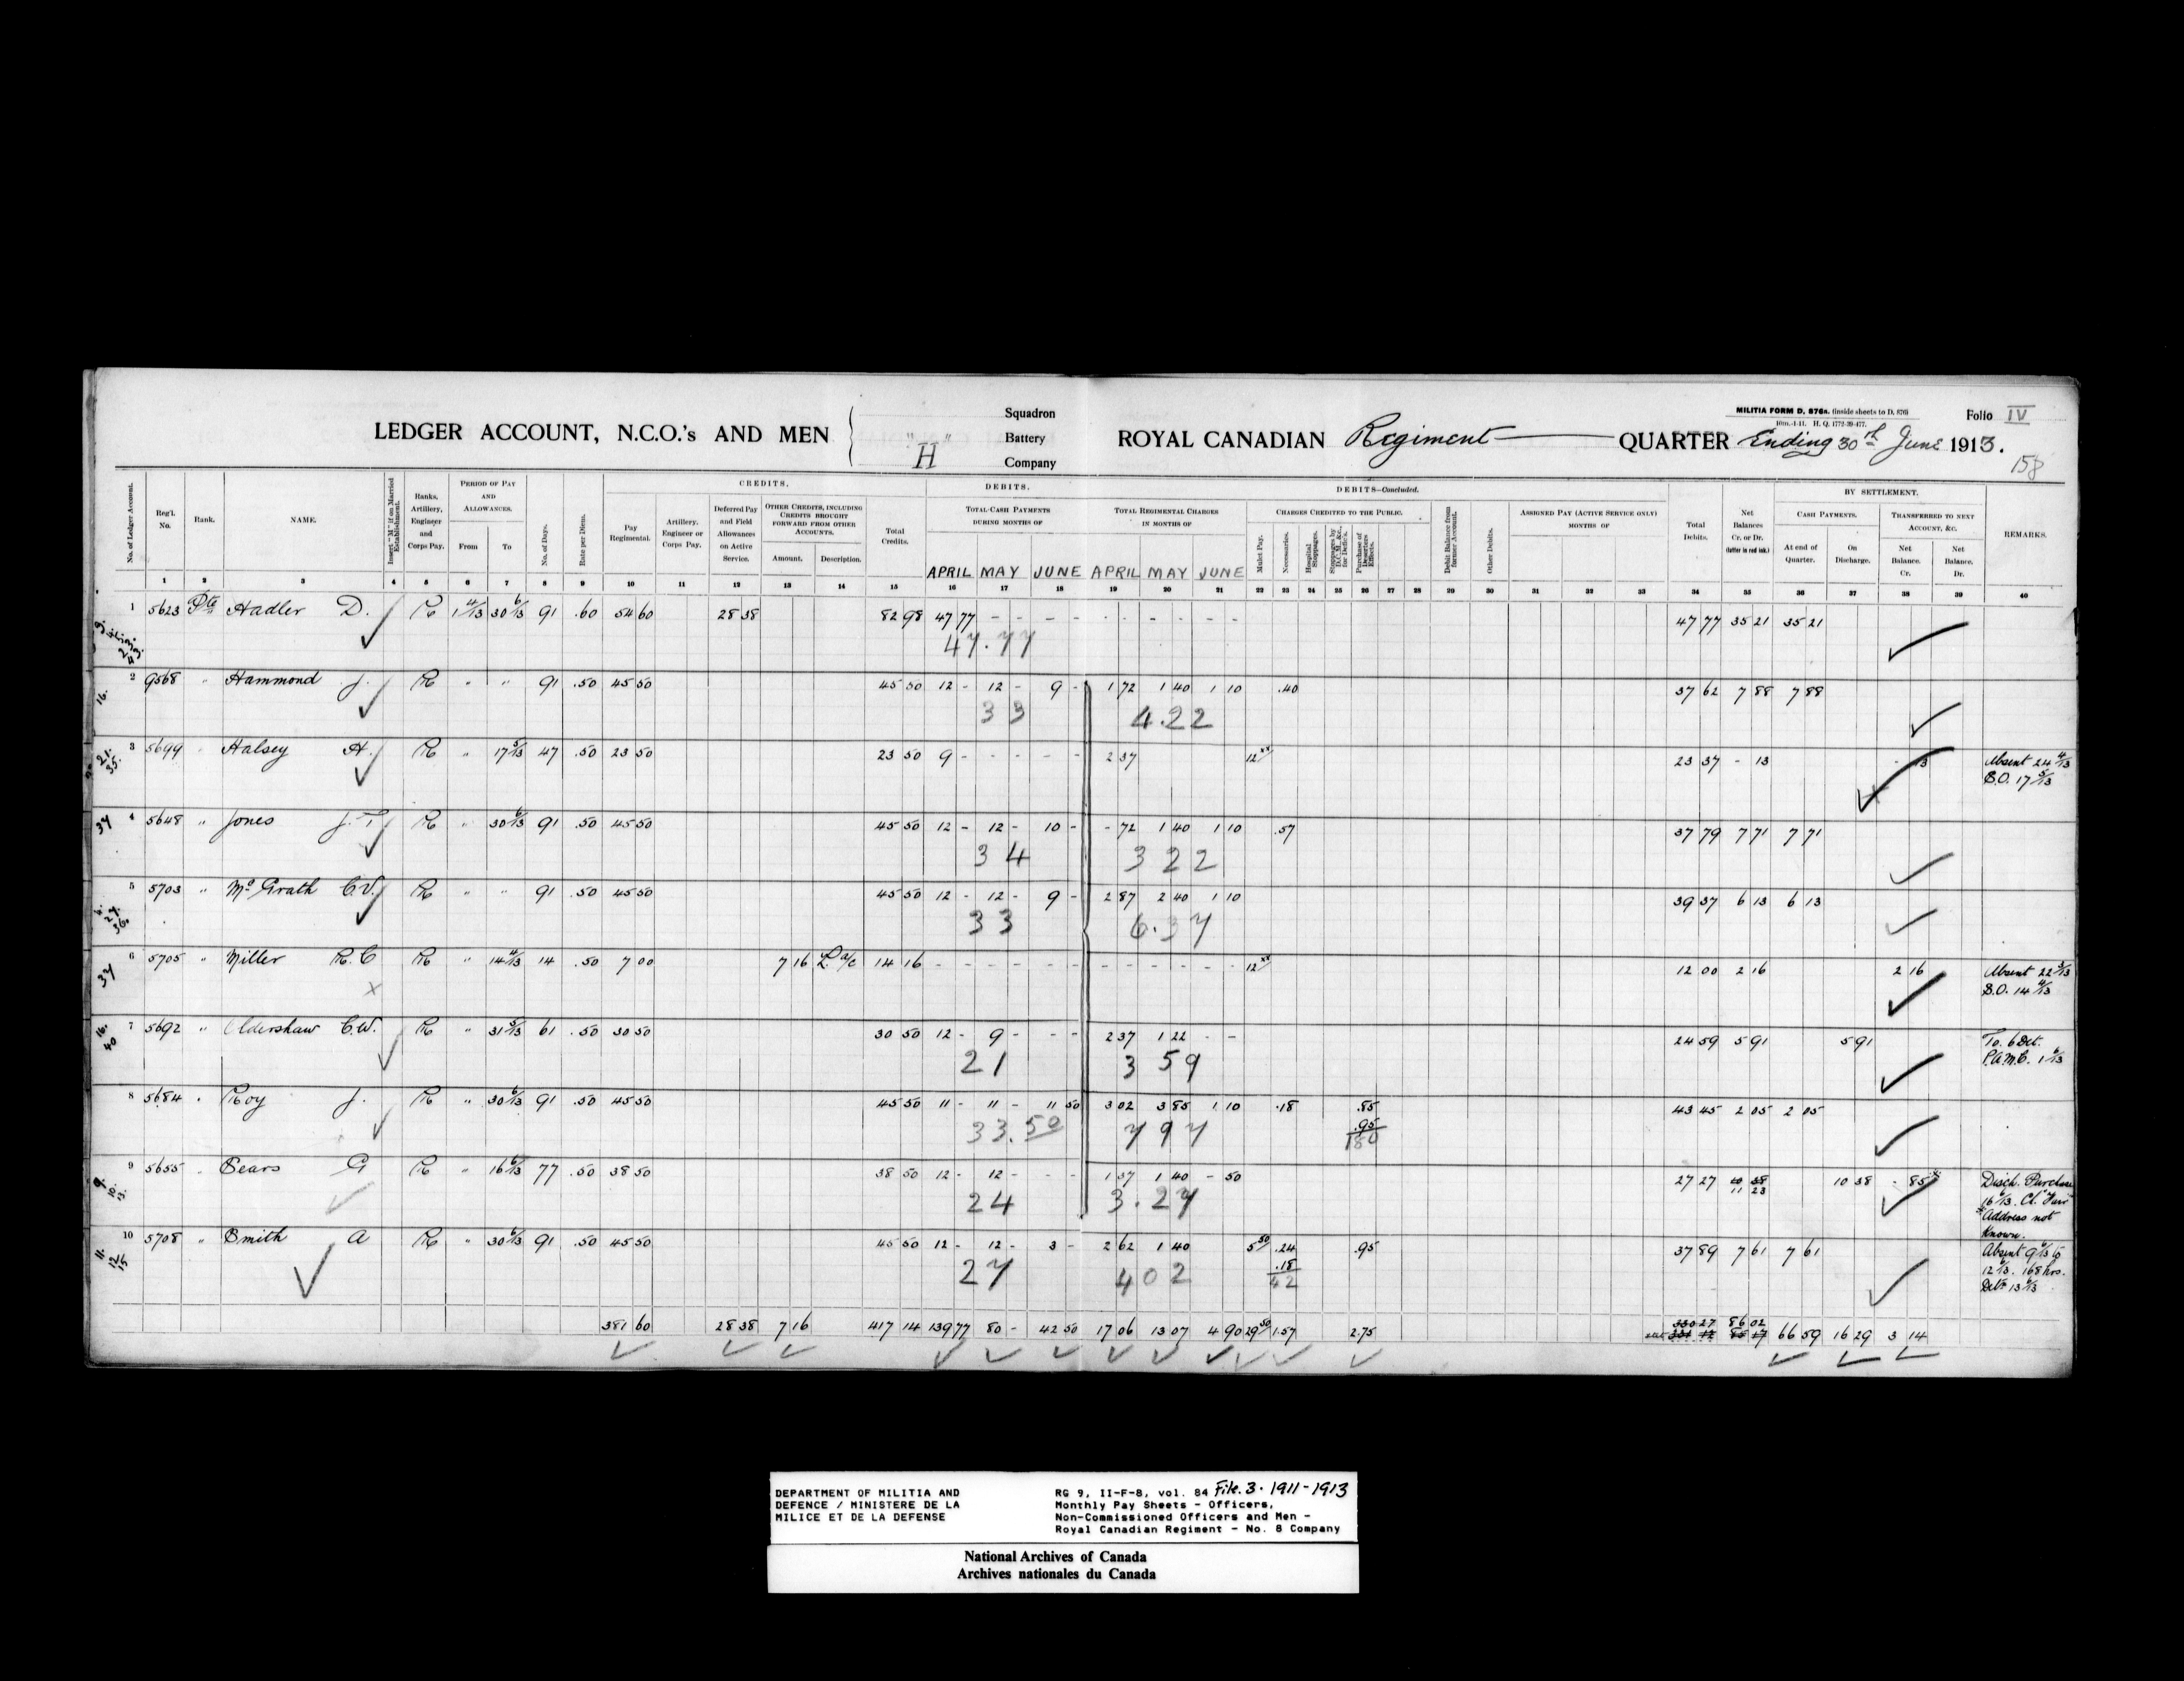 MILITIA FORM D. 876a. (inside sheets to D. 876)
10m.-1-11. H. Q. 1772-39-477.
Folio IV
LEDGER ACCOUNT, N.C.O.'s AND MEN
Squadron
"H" Battery
Company
ROYAL CANADIAN Regiment QUARTER Ending 30th June 1913.
158
CREDITS. DEBITS. DEBITS—Concluded. BY SETTLEMENT.
No. of Ledger Account.
Reg'l. No.
Rank.
NAME.
Insert "M" if on Married Establishment.
Ranks, Artillery, Engineer and Corps Pay.
PERIOD OF PAY AND ALLOWANCES.
From To
No. of Days.
Rate per Diem.
Pay Regimental.
Artillery, Engineer or Corps Pay.
Deferred Pay and Field Allowances on Active Service.
OTHER CREDITS, INCLUDING CREDITS BROUGHT FORWARD FROM OTHER ACCOUNTS.
Amount. Description.
Total Credits.
TOTAL CASH PAYMENTS DURING MONTHS OF
APRIL MAY JUNE
TOTAL REGIMENTAL CHARGES IN MONTHS OF
APRIL MAY JUNE
CHARGES CREDITED TO THE PUBLIC.
Mulct Pay.
Necessaries.
Hospital Stoppages.
Purchase of Deserters Effects.
Debit Balance from former Account.
Other Debits.
ASSIGNED PAY (ACTIVE SERVICE ONLY) MONTHS OF
Total Debits.
Net Balances Cr. or Dr. (latter in red ink.)
CASH PAYMENTS.
At end of Quarter. On Discharge.
TRANSFERRED TO NEXT ACCOUNT, &C.
Net Balance. Cr. Net Balance. Dr.
REMARKS.
1 2 3 4 5 6 7 8 9 10 11 12 13 14 15 16 17 18 19 20 21 22 23 24 25 26 27 28 29 30 31 32 33 34 35 36 37 38 39 40
1 5623 Pte Hadler D. R 1 4/13 30 6/13 91 .60 54 60 28 38 82 98 47 77 - - - - - - - - - - 47 77 35 21 35 21
47.77
2 9568 " Hammond J. R " " 91 .50 45 50 45 50 12 - 12 - 9 - 1 72 1 40 1 10 .40 37 62 7 88 7 88
33 4.22
3 5699 " Halsey H. R " 17 5/13 47 .50 23 50 23 50 9 - - - - - 2 37 12 xx 23 37 - 13 - 13 Absent 24 4/13
S.O. 17 5/13
4 5648 " Jones J. T. R " 30 6/13 91 .50 45 50 45 50 12 - 12 - 10 - - 72 1 40 1 10 .57 37 79 7 71 7 71
34 3 22
5 5703 " McGrath C.V. R " " 91 .50 45 50 45 50 12 - 12 - 9 - 2 87 2 40 1 10 39 37 6 13 6 13
33 6.37
6 5705 " Miller R.C R " 14 4/13 14 .50 7 00 7 16 L. a/c 14 16 - - - - - - - - - - - - 12 xx 12 00 2 16 2 16 Absent 22 3/13
S.O. 14 4/13
7 5692 " Oldershaw C.W. R " 31 5/13 61 .50 30 50 30 50 12 - 9 - - - 2 37 1 22 - - 24 59 5 91 5 91 To. 6 Det.
21 3 59 P.A.M.C. 1 6/13
8 5684 " Roy J. R " 30 6/13 91 .50 45 50 45 50 11 - 11 - 11 50 3 02 3 85 1 10 .18 .85 43 45 2 05 2 05
33.50 7 97 .95
1 80
9 5655 " Sears G R " 16 6/13 77 .50 38 50 38 50 12 - 12 - - - 1 37 1 40 - 50 27 27 11 23 10 38 - 85 Disch. Purchase
24 3.27 16 6/13.
Address not
Known.
10 5708 " Smith A R " 30 6/13 91 .50 45 50 45 50 12 - 12 - 3 - 2 62 1 40 5 50 .24 .95 37 89 7 61 7 61 Absent 9 6/13 to
27 4 02 .18 12 6/13. 168 hrs.
42 Detn 13 6/13
381 60 28 38 7 16 417 14 139 77 80 - 42 50 17 06 13 07 4 90 29 50 1.57 2.75 330 27 86 02 66 59 16 29 3 14
DEPARTMENT OF MILITIA AND
DEFENCE / MINISTERE DE LA
MILICE ET DE LA DEFENSE
RG 9, II-F-8, vol. 84 File. 3. 1911-1913
Monthly Pay Sheets - Officers,
Non-Commissioned Officers and Men -
Royal Canadian Regiment - No. 8 Company
National Archives of Canada
Archives nationales du Canada